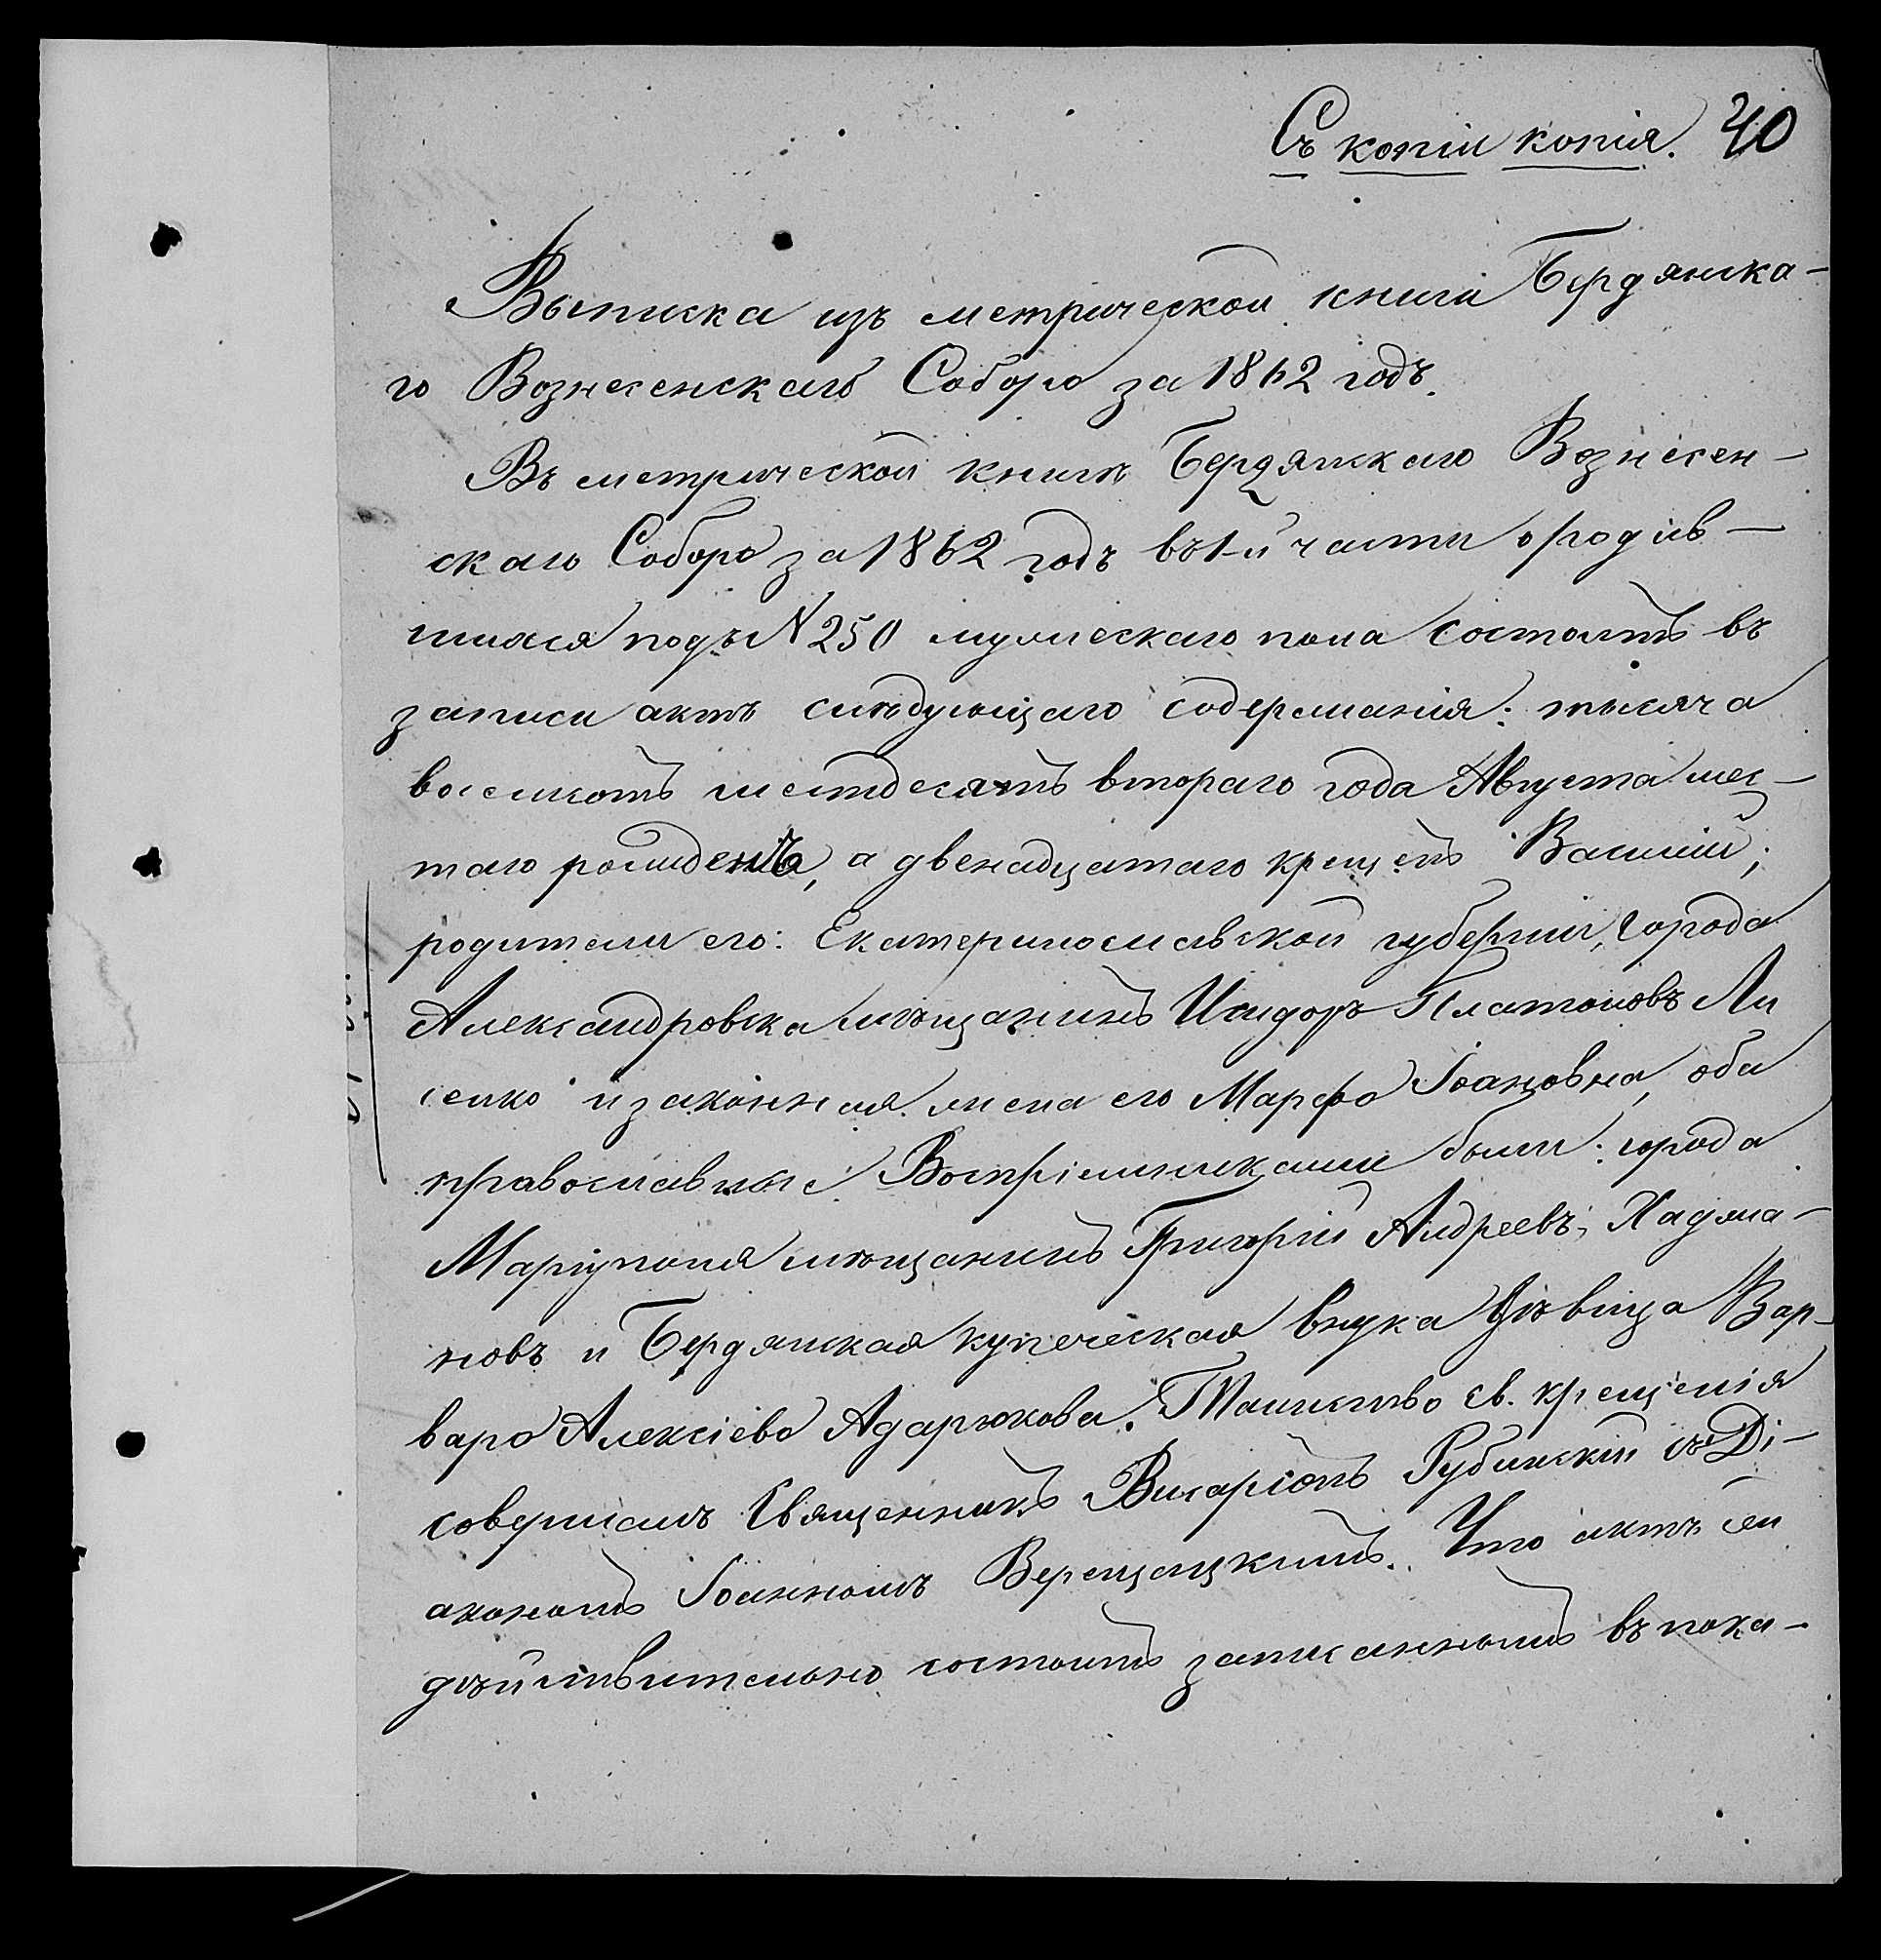 Съ копіи копія. 40
Выписка изъ метрической книги Бердянска-
го Вознесенскаго Собора за 1862 годъ.
Въ метрической книгѣ Бердянскаго Вознесен-
скаго Собора за 1862 годъ въ 1-й части о родив-
шихся подъ № 250 мужескаго пола состоитъ въ
записи актъ слѣдующаго содержанія: тысяча
восемьсотъ шестьдесятъ втораго года Августа шес-
таго рожденъ, а двенадцатаго крещенъ Василій;
родители его: Екатеринославской губерніи, города
Александровска мѣщанинъ Исидоръ Платоновъ Ли
сенко и законная жена его Марфа Іоановна, оба
православные. Воспріемниками были: города
Маріуполя мѣщанинъ Григорій Андреевъ, Хаджи-
новъ и Бердянская купеческая внука дѣвица Вар-
вара Алексіева Адарюкова. Таинство св. крещенія
совершалъ Священникъ Виссаріонъ Рубинскій съ Ді-
акономъ Іоанномъ Верещацкимъ. Что актъ сей
дѣйствительно состоитъ записаннымъ въ пока-